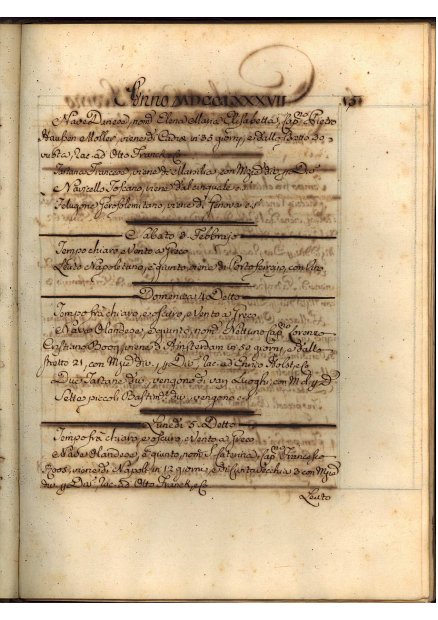 Anno MDCCLXXXVII 15
Nave Danese, nom.ª Elena Maria Elisabetta, Cap.no Piedro
Hauben Moller, viene di Cadice in 35 giorni, e dallo Stretto 20
ad Otto Franck
Tartana Francese, viene da Marsilia, con Mzie
Navicello Toscano, viene dal
Felugone Gerosolemitano, viene di Genova
Sabato 3 Febbrajo
Tempo chiaro, e Vento a Greco
Leuto Napoletano, è giunto, viene di Porto ferraio, con Vino
Domenica 4 Detto
Tempo frà chiaro, e oscuro, e Vento a Greco
Nave Olandese, è giunto, nom.ª Nettuno Cap.no Lorenzo
Cristiano Boon, viene di Amsterdam in 50 giorni, e dallo
stretto 21, con Mzie div. ad Enrico
Due Tartane div. vengono di varj Luoghi, con Md.
Sette piccoli Bastim.ti div. vengono
Lunedì 5 Detto
Tempo frà chiaro, e oscuro, e Vento a Greco
Nave Olandese, è giunto, nom.ª Caterina, Cap.no Francesco
viene di Napoli in 12 giorni, e di Civita Vecchia 3 con Mzie
div. ad Otto Franck
Leuto